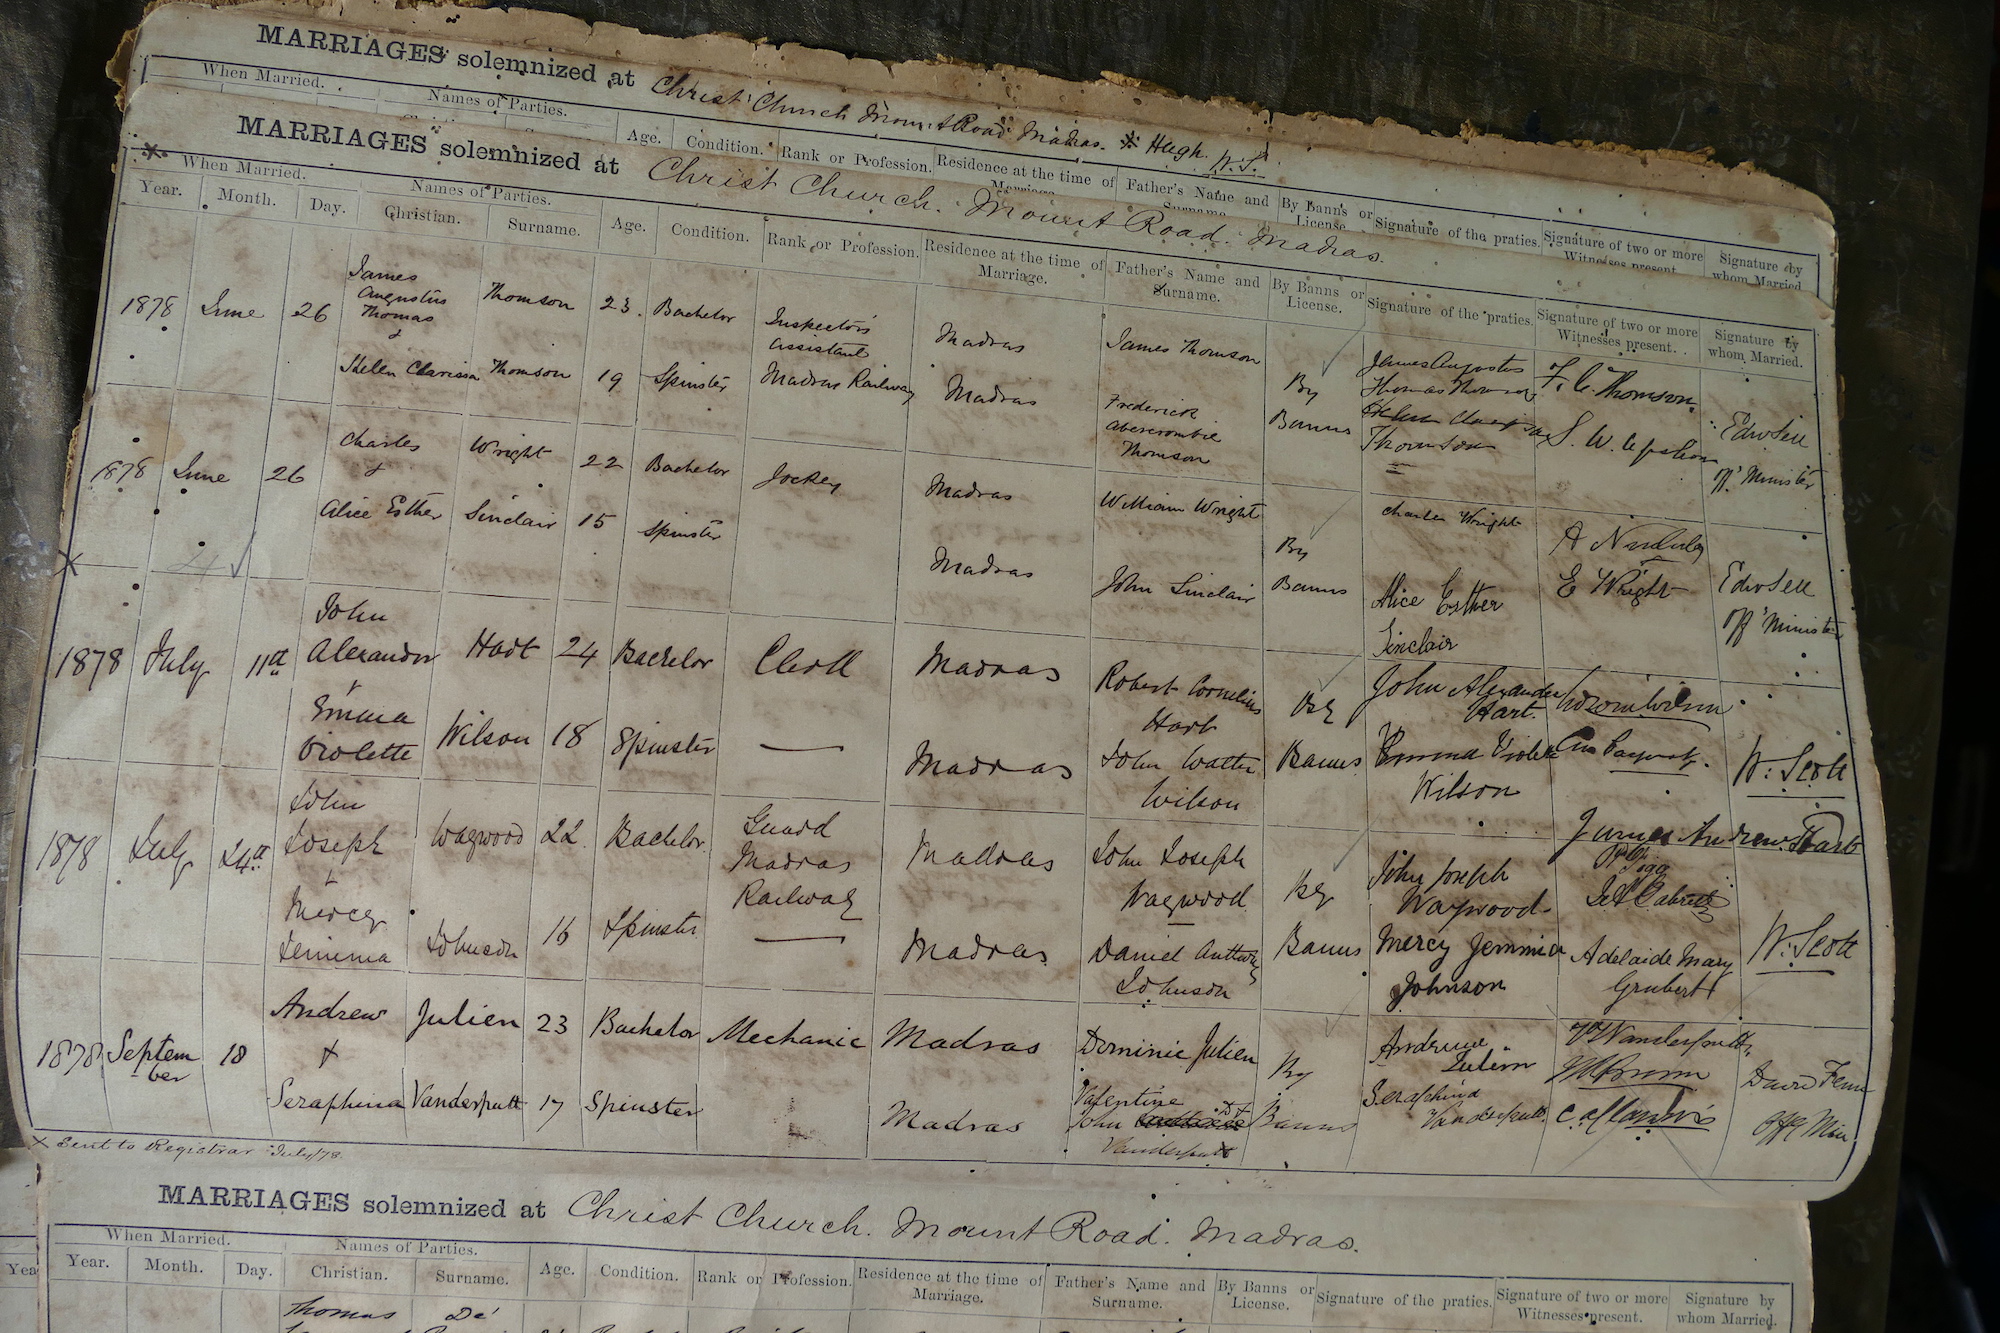 MARRIAGES solemnized at Christ Church Mount Road Madras. * Hugh. W.S.
When Married. Names of Parties.
Age. Condition. Rank or Profession. Residence at the time of Father's Name and By Banns or Signature of the praties. Signature of two or more Signature by
License. Witnesses present whom Married
MARRIAGES solemnized at Christ Church. Mount Road. Madras.
When Married. Names of Parties.
Year. Month. Day. Christian. Surname. Age. Condition. Rank or Profession. Residence at the time of Marriage. Father's Name and Surname. By Banns or License. Signature of the praties. Signature of two or more Witnesses present. Signature by whom Married.
1878 June 26 James Augustus Thomas & Thomson 23 Bachelor Inspector's Assistant Madras James Thomson By James Augustus Thomas F. C. Thomson. Edw Sell
Clarissa Thomson 19 Spinster Madras Railway Madras Frederick Abercrombie Thomson Banns Thomson S. W. offg Minister
1878 June 26 Charles & Wright 22 Bachelor Jockey Madras William Wright By Charles Wright A
Alice Esther Sinclair 15 Spinster Madras John Sinclair Banns Alice Esther Sinclair E Wright Edw Sell offg Minister
1878 July 11th John Alexander & Hart 24 Bachelor Clerk Madras Robert Cornelius Hart By John Alexander Hart.
Emma Violette Wilson 18 Spinster — Madras John Walter Wilson Banns Emma Violette Wilson W. Scott
James Andrew Hart
1878 July 24th John Joseph & Waywood 22 Bachelor Guard Madras Railway Madras John Joseph Waywood By John Joseph Waywood
Mercy Jemima Johnson 16 Spinster — Madras Daniel Anthony Johnson Banns Mercy Jemmia Johnson Adelaide Mary Grubert W. Scott
1878 September 18 Andrew & Julien 23 Bachelor Mechanic Madras Dominic Julien By Andrew Julien Vanderputt David Fenn
Seraphina Vanderputt 17 Spinster Madras Valentine John Vanderputt Banns Seraphina Vanderputt Offg Min.
× Sent to Registrar July/78.
MARRIAGES solemnized at Christ Church. Mount Road. Madras.
When Married. Names of Parties.
Year. Month. Day. Christian. Surname. Age. Condition. Rank or Profession. Residence at the time of Marriage. Father's Name and Surname. By Banns or License. Signature of the praties. Signature of two or more Witnesses present. Signature by whom Married.
Thomas De